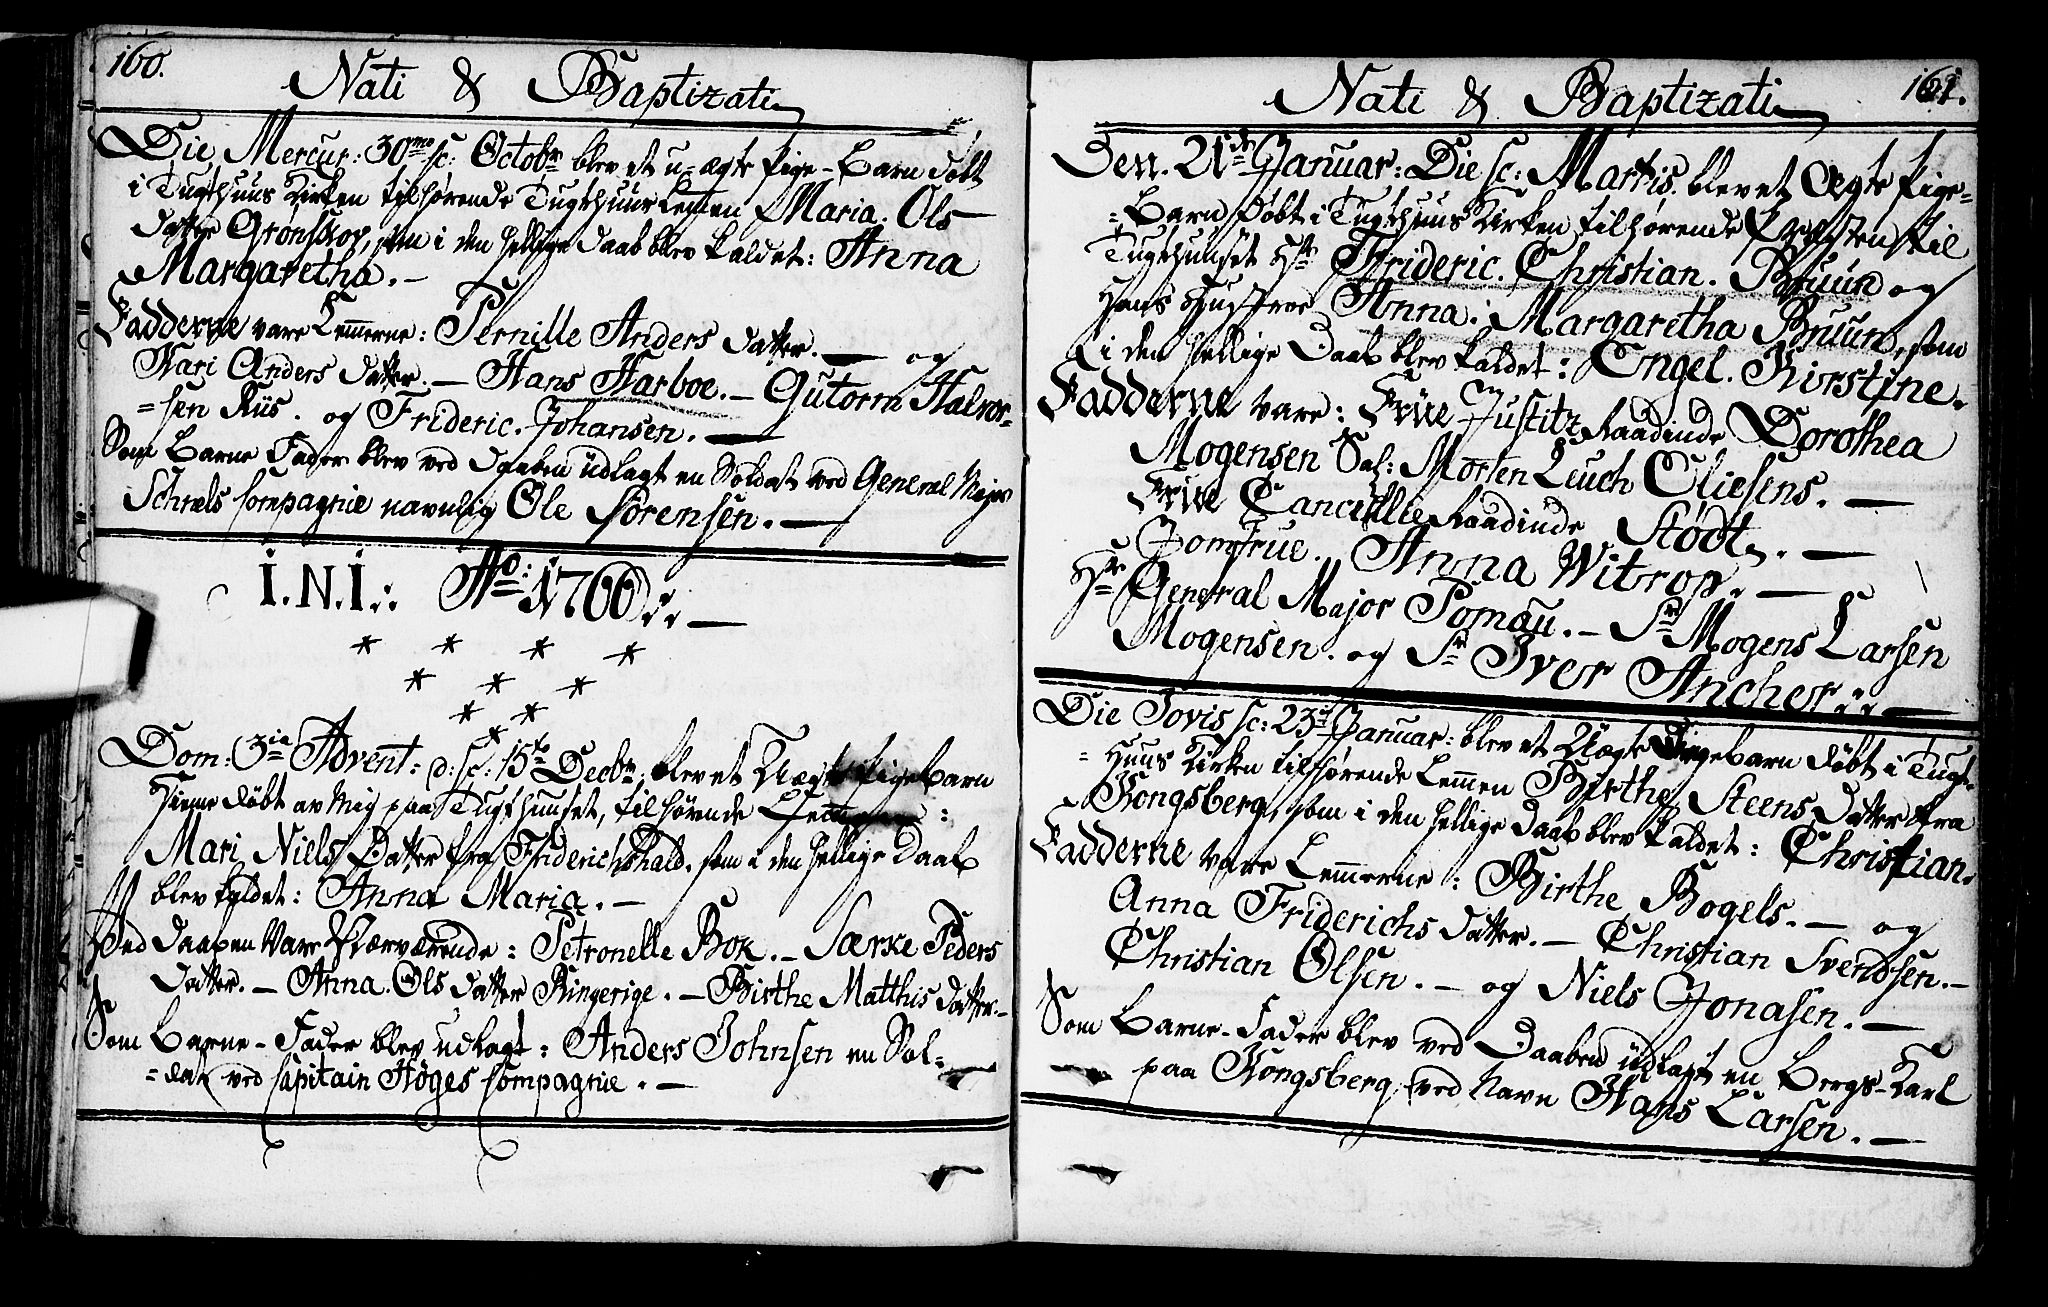 160.
Nati & Baptizati
Die Mercur: 30mo sc: Octobr blev et u-ægte Pige-Barn døbt
i Tugthuus Kirken tilhørende Tugthuus Lemen Maria. Ols
Datter Grønskop, som i den hellige Daab blev kaldet: Anna
Margaretha. -
Fadderne vare Lem̄erne: Pernille Anders Datter. — og
Kari Anders Datter. — Hans Harboe. — Gutorm Halvor-
=sen Riis. og Frideric. Johansen. —
Som Barne Fader blev ved Daaben üdlagt en Soldat ved General Major
Schnels Compagnie navnlig Ole Sørensen. —
I. N. I.: Ao: 1766: —
* * * *
* * *
* *
*
Dom: 3ia Advent: d: sc: 15to Decbr, blev et Uægte Pigebarn
Hieme døbt av Mig paa Tugthuuset, tilhørende
Mari Niels Datter fra Friderichshald. som i den hellige Daab
blev kaldet: Anna Maria. —
Ved Daaben Vare Nærværende: Petronelle Bok. — Særke Peders
Datter. — Anna. Ols Datter Ringerige. — Birthe Matthis Datter. -
Som Barne-Fader blev udlagt: Anders Johnsen en Sol=
=dat ved Capitain Høges Compagnie. —
161.
Nati & Baptizati
Den. 21de Januar: Die sc: Martis. blev et Ægte Pige-
=Barn døbt i Tugthuus Kirken tilhørende Præsten til
Tugthuuset Hr Frideric. Christian. Bruun og
Hans Hustroe Anna. Margaretha Bruun, som
i den hellige Daab blev kaldet: Engel. Kirstine.
Fadderne vare: Frue Justitz Raadinde Dorothea
Mogensen Sal: Morten Leuch Eliesens. —
Frue Cancellie Raadinde Stødt. —
Jomfrue. Anna Witrop. —
Hr General Major Pomau. — Sr Mogens Larsen
Mogensen. og Sr Iver Ancher: —
Die Jovis sc: 23de Januar: blev et Uægte Drengebarn døbt i Tugt-
=huus Kirken tilhørende Lem̄en Birthe Steens Datter fra
Kongsberg, som i den hellige Daab blev kaldet: Christian.
Fadderne vare Lem̄erne: Birthe Bogels. — og
Anna Friderichs Datter. — Christian Svendsen. —
Christian Olsen. — og Niels Jonasen. —
Som Barne-Fader blev ved Daaben üdlagt en Bergs-Karl
paa Kongsberg, ved Navn Hans Larsen. —